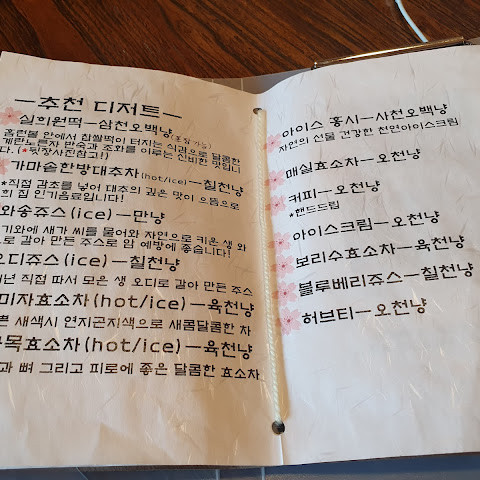 —추천 디저트—
실희원떡—삼천오백냥
홈런볼 안에서 찹쌀떡이 터지는 식감으로 달콤한
계란노른자 반숙과 조화를 이루는 신비한 맛입니
다. (*뒷장사진참고!)
가마솥한방대추차(hot/ice)—칠천냥
*직접 감초를 넣어 대추의 깊은 맛이 으뜸으로
희 집 인기음료입니다!
와송쥬스(ice)—만냥
기와에 새가 씨를 물어와 자연으로 키운 생 와
로 갈아 만든 주스로 암 예방에 좋습니다!
오디쥬스(ice)—칠천냥
년 직접 따서 모은 생 오디로 갈아 만든 주스
미자효소차(hot/ice)—육천냥
쁜 새색시 연지곤지색으로 새콤달콤한 차
목효소차(hot/ice)—육천냥
과 뼈 그리고 피로에 좋은 달콤한 효소차
아이스 홍시—사천오백냥
자연의 선물 건강한 천연아이스크림
매실효소차—오천냥
커피—오천냥
*핸드드립
아이스크림—오천냥
보리수효소차—육천냥
블루베리쥬스—칠천냥
허브티—오천냥